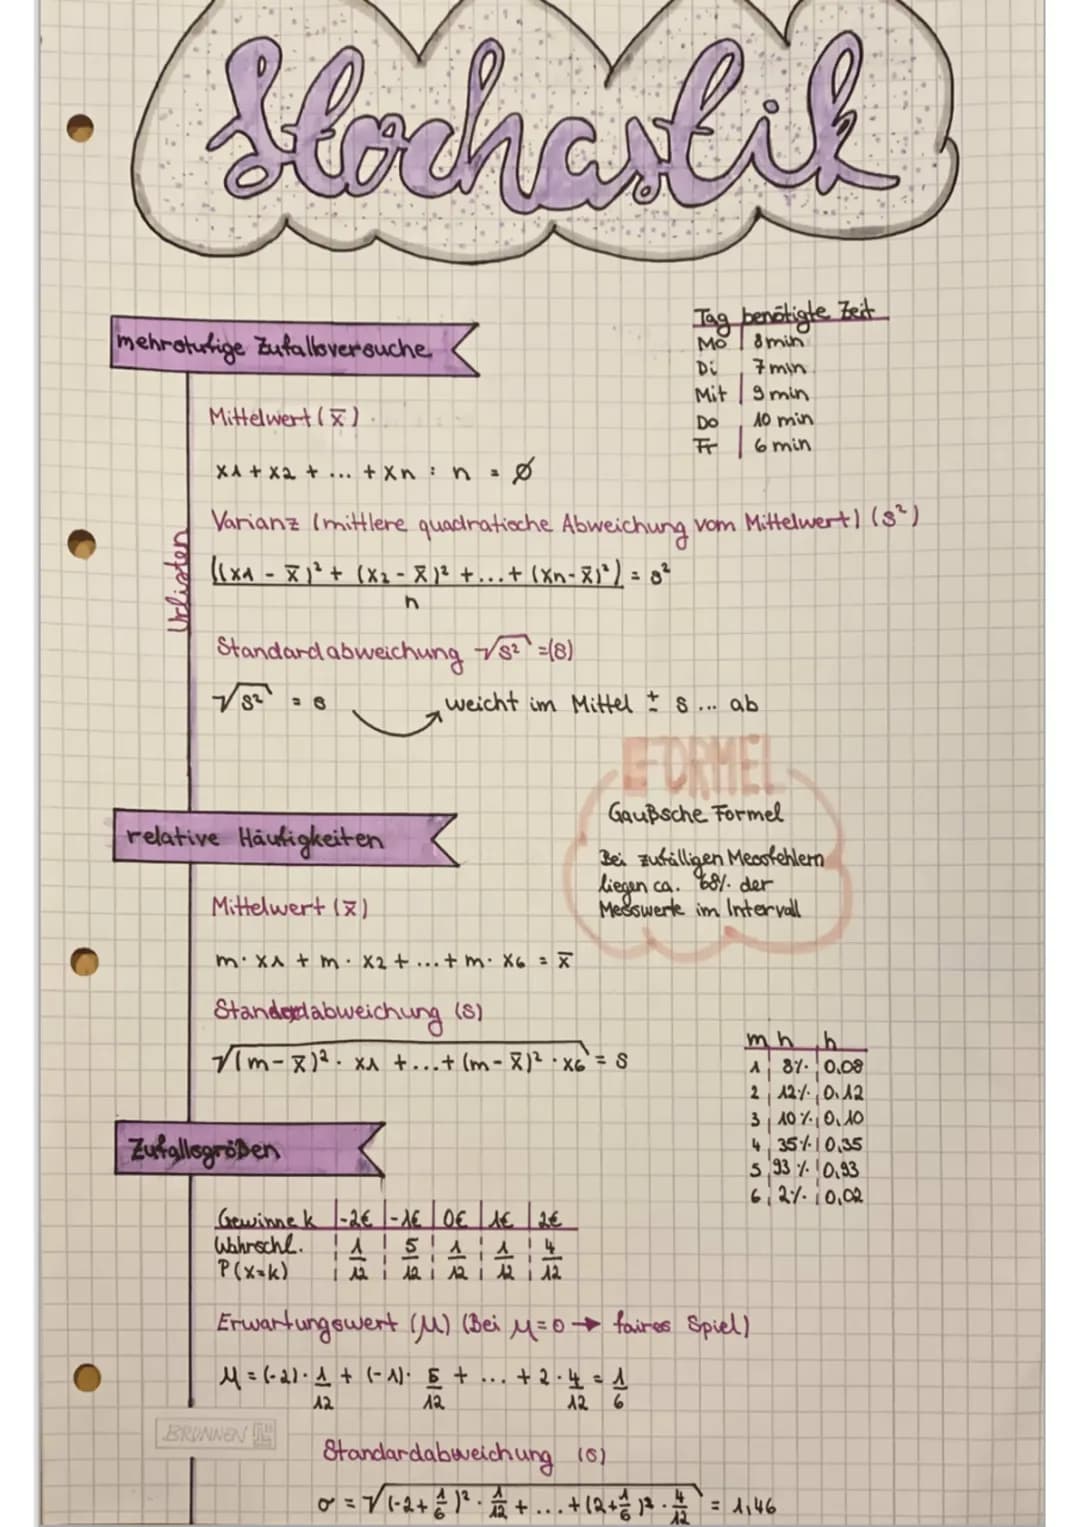 Stochastik
mehrstufige Zufallsversuche
Tag benötigte Zeit
Mo 8 min
Di 7 min
Mit 9 min
Do 10 min
Fr 6 min
Urlisten
Mittelwert (x̅)
x1 + x2 + ... + xn : n = Ø
Varianz (mittlere quadratische Abweichung vom Mittelwert) (s²)
((x1 - x̅)² + (x2 - x̅)² + ... + (xn - x̅)²) = s²
n
Standardabweichung √s² = (s)
√s² = s weicht im Mittel ± s ... ab
FORMEL
Gaußsche Formel
Bei zufälligen Messfehlern
liegen ca. 68% der
Messwerte im Intervall
relative Häufigkeiten
Mittelwert (x̅)
m · x1 + m · x2 + ... + m · x6 = x̅
Standardabweichung (s)
√(m - x̅)² · x1 + ... + (m - x̅)² · x6 = s
m h h
1 8% 0,08
2 12% 0,12
3 10% 0,10
4 35% 0,35
5 93% 0,93
6 2% 0,02
Zufallsgrößen
Gewinne k -2€ -1€ 0€ 1€ 2€
Wahrschl. 1 5 1 1 4
P(x=k) 12 12 12 12 12
Erwartungswert (μ) (Bei μ=0 → faires Spiel)
μ = (-2) · 1/12 + (-1) · 5/12 + ... + 2 · 4/12 = 1/6
BRUNNEN
Standardabweichung (σ)
σ = √(-2+1/6)² · 1/12 + ... + (2+1/6)² · 4/12 = 1,46